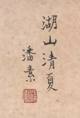 湖山清夏
潘素